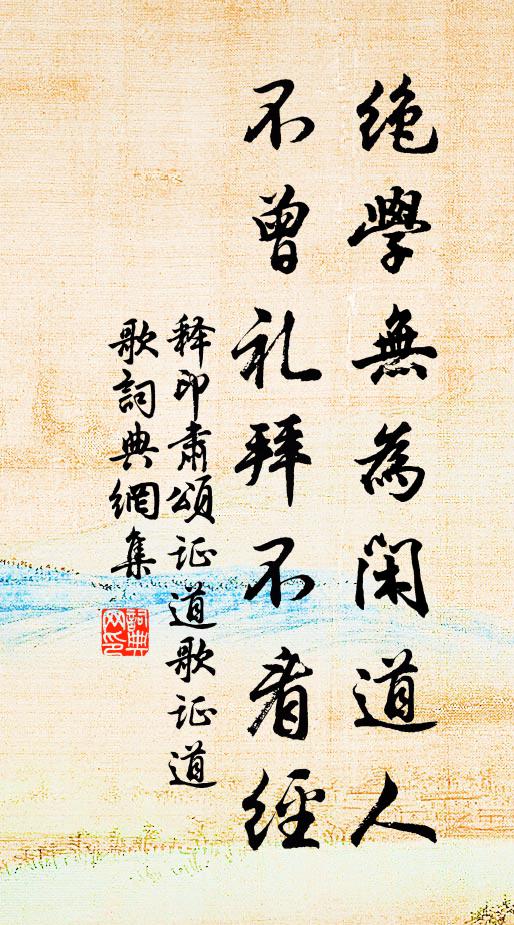 絶學無為閑道人
不曾礼拜不看經
释印肅頌证道歌证道
歌詞典網集
詞典
网印